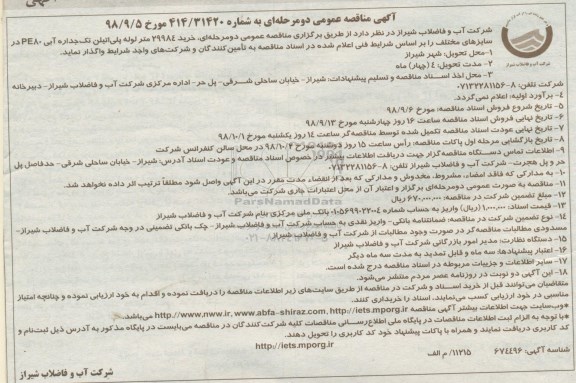 آگهی مناقصه عمومی دومرحله‌ای به شماره ۴۱۴/۳۱۴۲۰ مورخ ۹۸/۹/۵
شرکت آب و فاضلاب شیراز در نظر دارد از طریق برگزاری مناقصه عمومی دومرحله‌ای، خرید ۲۹۹۸۴ متر لوله پلی‌اتیلن تک‌جداره آبی PE۸۰ در
سایزهای مختلف را بر اساس شرایط فنی اعلام شده در اسناد مناقصه به تأمین‌کنندگان و شرکت‌های واجد شرایط واگذار نماید.
۱-محل تحویل: شهر شیراز
۲- مدت تحویل: ٤ (چهار) ماه
شرکت آب و فاضلاب شیراز
۳- محل اخذ اسـناد مناقصه و تسلیم پیشنهادات: شیراز- خیابان ساحلی شـرقی- پل حر- اداره مرکزی شرکت آب و فاضلاب شیراز- دبیرخانه
شرکت تلفن: ۸-۰۷۱۳۲۲۸۱۱۵۶
٤- برآورد اولیه: اعلام نمی‌گردد.
۵- تاریخ شروع فروش اسناد مناقصه: مورخ ۹۸/۹/۶
۶- تاریخ نهایی فروش اسناد مناقصه ساعت ۱۶ روز چهارشنبه مورخ ۹۸/۹/۱۳
۷- تاریخ نهایی عودت اسناد مناقصه تکمیل شده توسط مناقصه‌گر ساعت ۱٤ روز یکشنبه مورخ ۹۸/۱۰/۱
۸- تاریخ بازگشایی مرحله اول پاکات مناقصه: رأس ساعت ۱۵ روز دوشنبه مورخ ۹۸/۱۰/۲ در محل سالن کنفرانس شرکت
۹- اطلاعات تماس دستگاه مناقصه‌گزار جهت دریافت اطلاعات بیشتر در خصوص اسناد مناقصه و عودت اسناد آدرس: شیراز- خیابان ساحلی شرقی- حدفاصل پل
حر و پل هجرت- شرکت آب و فاضلاب شیراز تلفن: ۸-۰۷۱۳۲۲۸۱۱۵۶
۱۰- به مدارکی که فاقد امضاء، مشروط، مخدوش و مدارکی که بعد از انقضاء مدت مقرر در این آگهی واصل شود مطلقاً ترتیب اثر داده نخواهد شد.
۱۱- مناقصه به صورت عمومی دومرحله‌ای برگزار و اعتبار آن از محل اعتبارات جاری شرکت می‌باشد.
۱۲- مبلغ تضمین شرکت در مناقصه: ۶۷۰/۰۰۰/۰۰۰ ریال
۱۳- قیمت اسناد: ۱/۰۰۰/۰۰۰ (ریال) واریز به حساب شماره بانک ملی مرکزی بنام شرکت آب و فاضلاب شیراز
۱٤- نوع تضمین شرکت در مناقصه: ضمانتنامه بانکی- واریز نقدی به حساب شرکت آب و فاضلاب شیراز- چک بانکی تضمینی در وجه شرکت آب و فاضلاب شیراز-
مسدودی مطالبات مناقصه‌گر در صورت وجود مطالبات از شرکت آب و فاضلاب شیراز
۱۵- دستگاه نظارت: مدیر امور بازرگانی شرکت آب و فاضلاب شیراز
۱۶- اعتبار پیشنهادها: سه ماه و قابل تمدید به مدت سه ماه دیگر
۱۷- سایر اطلاعات و جزییات مربوطه در اسناد مناقصه درج شده است.
۱۸- این آگهی دو نوبت در روزنامه عصر مردم منتشر می‌شود.
متقاضیان می‌توانند قبل از خرید اسـناد و شرکت در مناقصه از طریق سایت‌های زیر اطلاعات مناقصه را دریافت نموده و اقدام به خود ارزیابی نموده و چنانچه امتیاز
مناسبی در خود ارزیابی کسب می‌نمایند، اسناد را خریداری کنند.
*وب‌سایت جهت اطلاعات بیشتر آگهی مناقصه http://www.nww.ir, www.abfa-shiraz.com, http://iets.mporg.ir می‌باشد.
*با توجه به الزام ثبت اطلاعات مناقصاتی در پایگاه ملی اطلاع‌رسانی مناقصات کلیه شرکت کنندگان در مناقصه می‌بایست در پایگاه مذکور به آدرس ذیل ثبت‌نام و
کد کاربری دریافت نمایند و همراه با پاکات پیشنهاد خود کد کاربری را تحویل دهند.
http://iets.mporg.ir
شناسه آگهی: ۶۷٤٤۹۶ ۱۱۲۱۵/ م الف
شرکت آب و فاضلاب شیراز
ParsNamadData